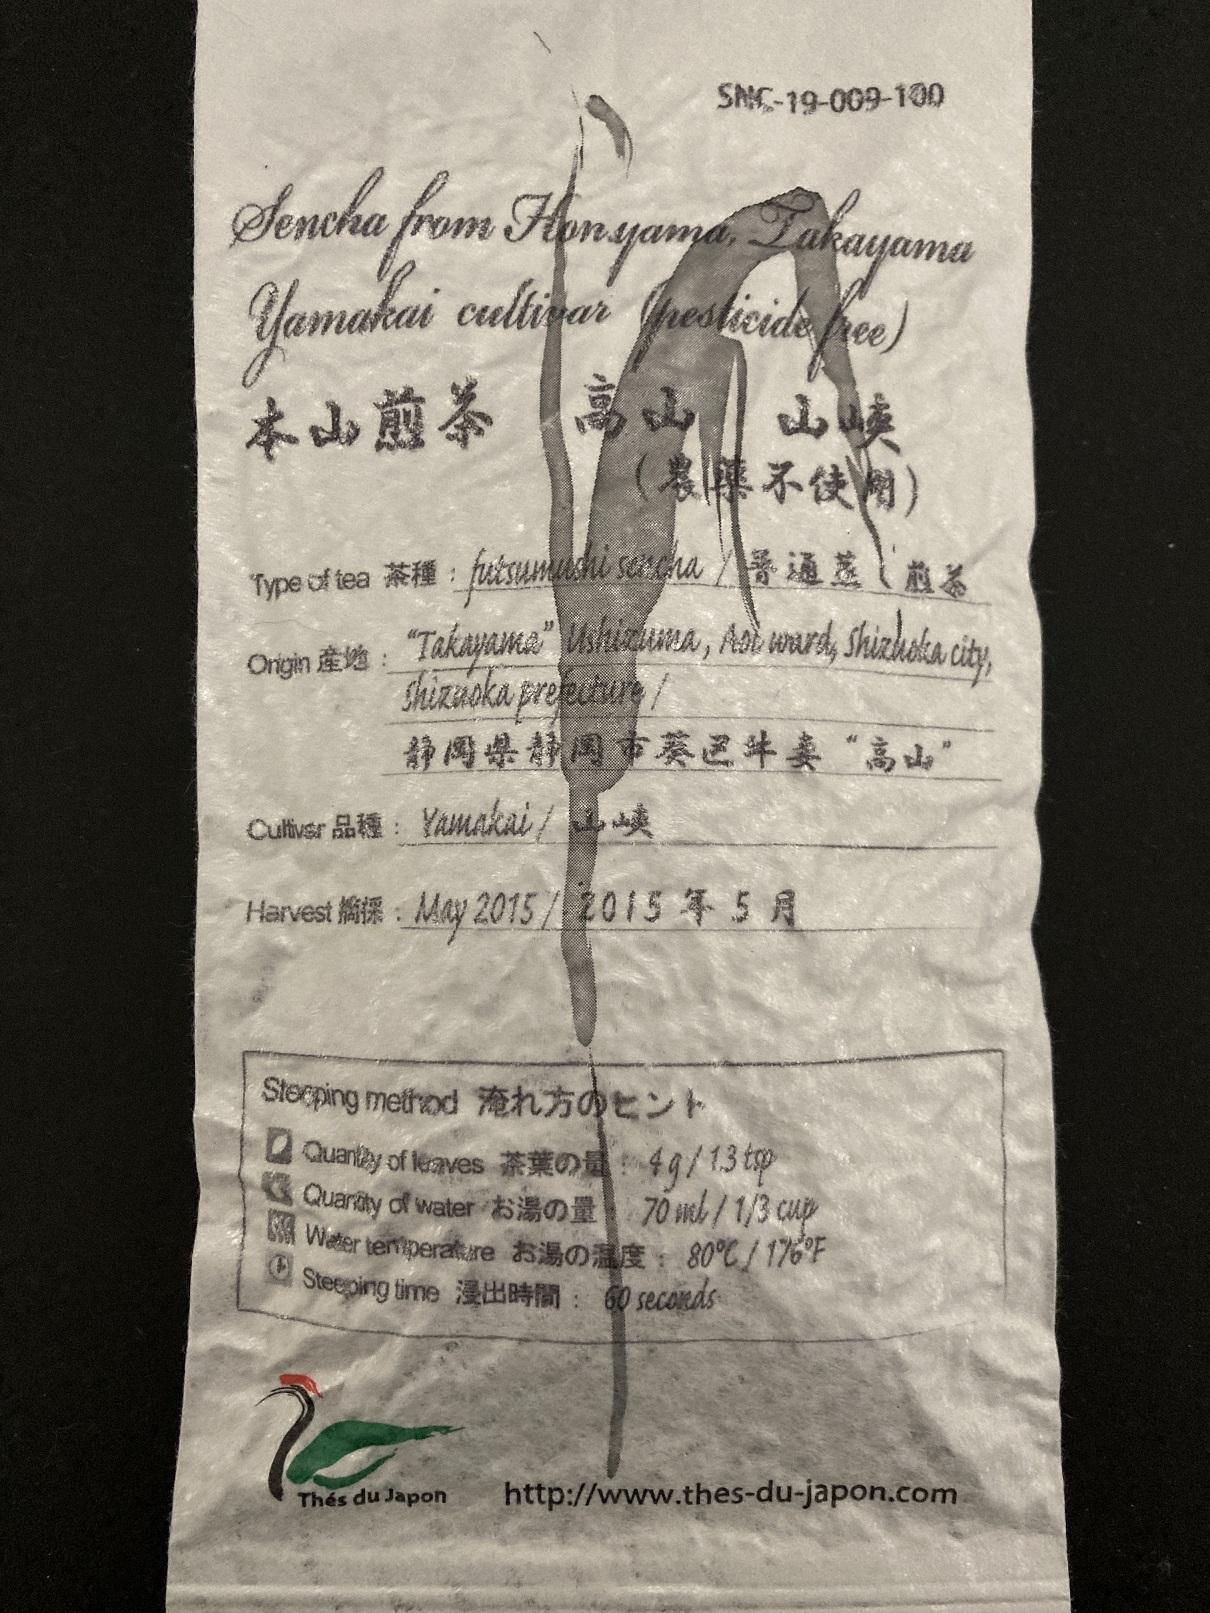 SNC-19-009-100
Sencha from Honyama, Takayama
Yamakai cultivar (pesticide free)
本山煎茶 高山 山峡
(農薬不使用)
Type of tea 茶種 : futsumushi sencha / 普通蒸し煎茶
Origin 産地 : "Takayama" Ushizuma, Aoi ward, Shizuoka city,
Shizuoka prefecture /
静岡県静岡市葵区牛妻 "高山"
Cultivar 品種 : Yamakai / 山峡
Harvest 摘採 : May 2015 / 2015年5月
Steeping method 淹れ方のヒント
Quantity of leaves 茶葉の量 : 4 g / 1.3 tsp
Quantity of water お湯の量 : 70 ml / 1/3 cup
Water temperature お湯の温度 : 80°C / 176°F
Steeping time 浸出時間 : 60 seconds
Thés du Japon
http://www.thes-du-japon.com